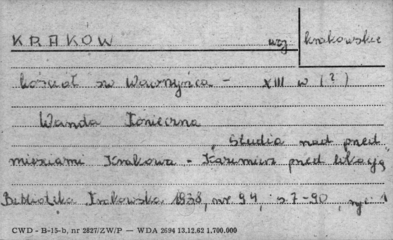 KRAKÓW woj krakowskie
kościół św Wawrzyńca - XIII w (?)
Wanda Konieczna
Studia nad przed
mieściami Krakowa - Kazimierz przed lokacją
Biblioteka Krakowska 1938, nr 94, s 7-90, ryc 1
CWD - B-15-b, nr 2827/ZW/P — WDA 2694 13.12.62 1.700.000